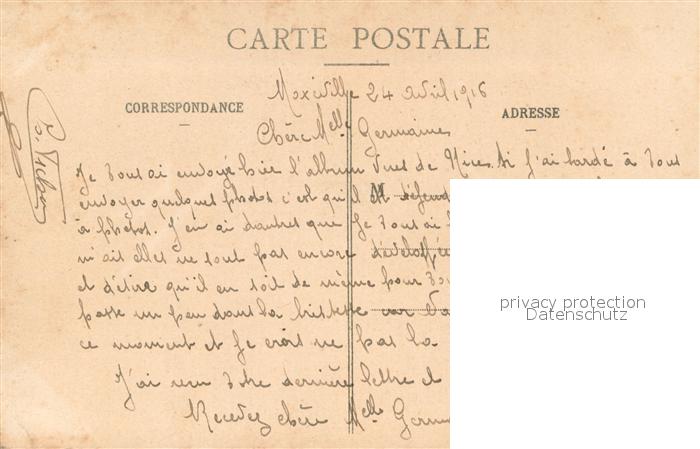 CARTE POSTALE
CORRESPONDANCE
ADRESSE
24 Avril 1916
Chère Melle Germaine
Je vous ai envoyé hier l'album Vues de Nice. Si j'ai tardé à vous
envoyer quelques photos c'est qu'il est défend
M
à photos. J'en ai d'autres que je vous ai
mais elles ne sont pas encore développée
et désire qu'il en soit de même pour vo
passe un peu dans la tristesse car
ce moment et je crois ne pas la
J'ai reçu votre dernière lettre et
Recevez chère Melle Germ
privacy protection
Datenschutz